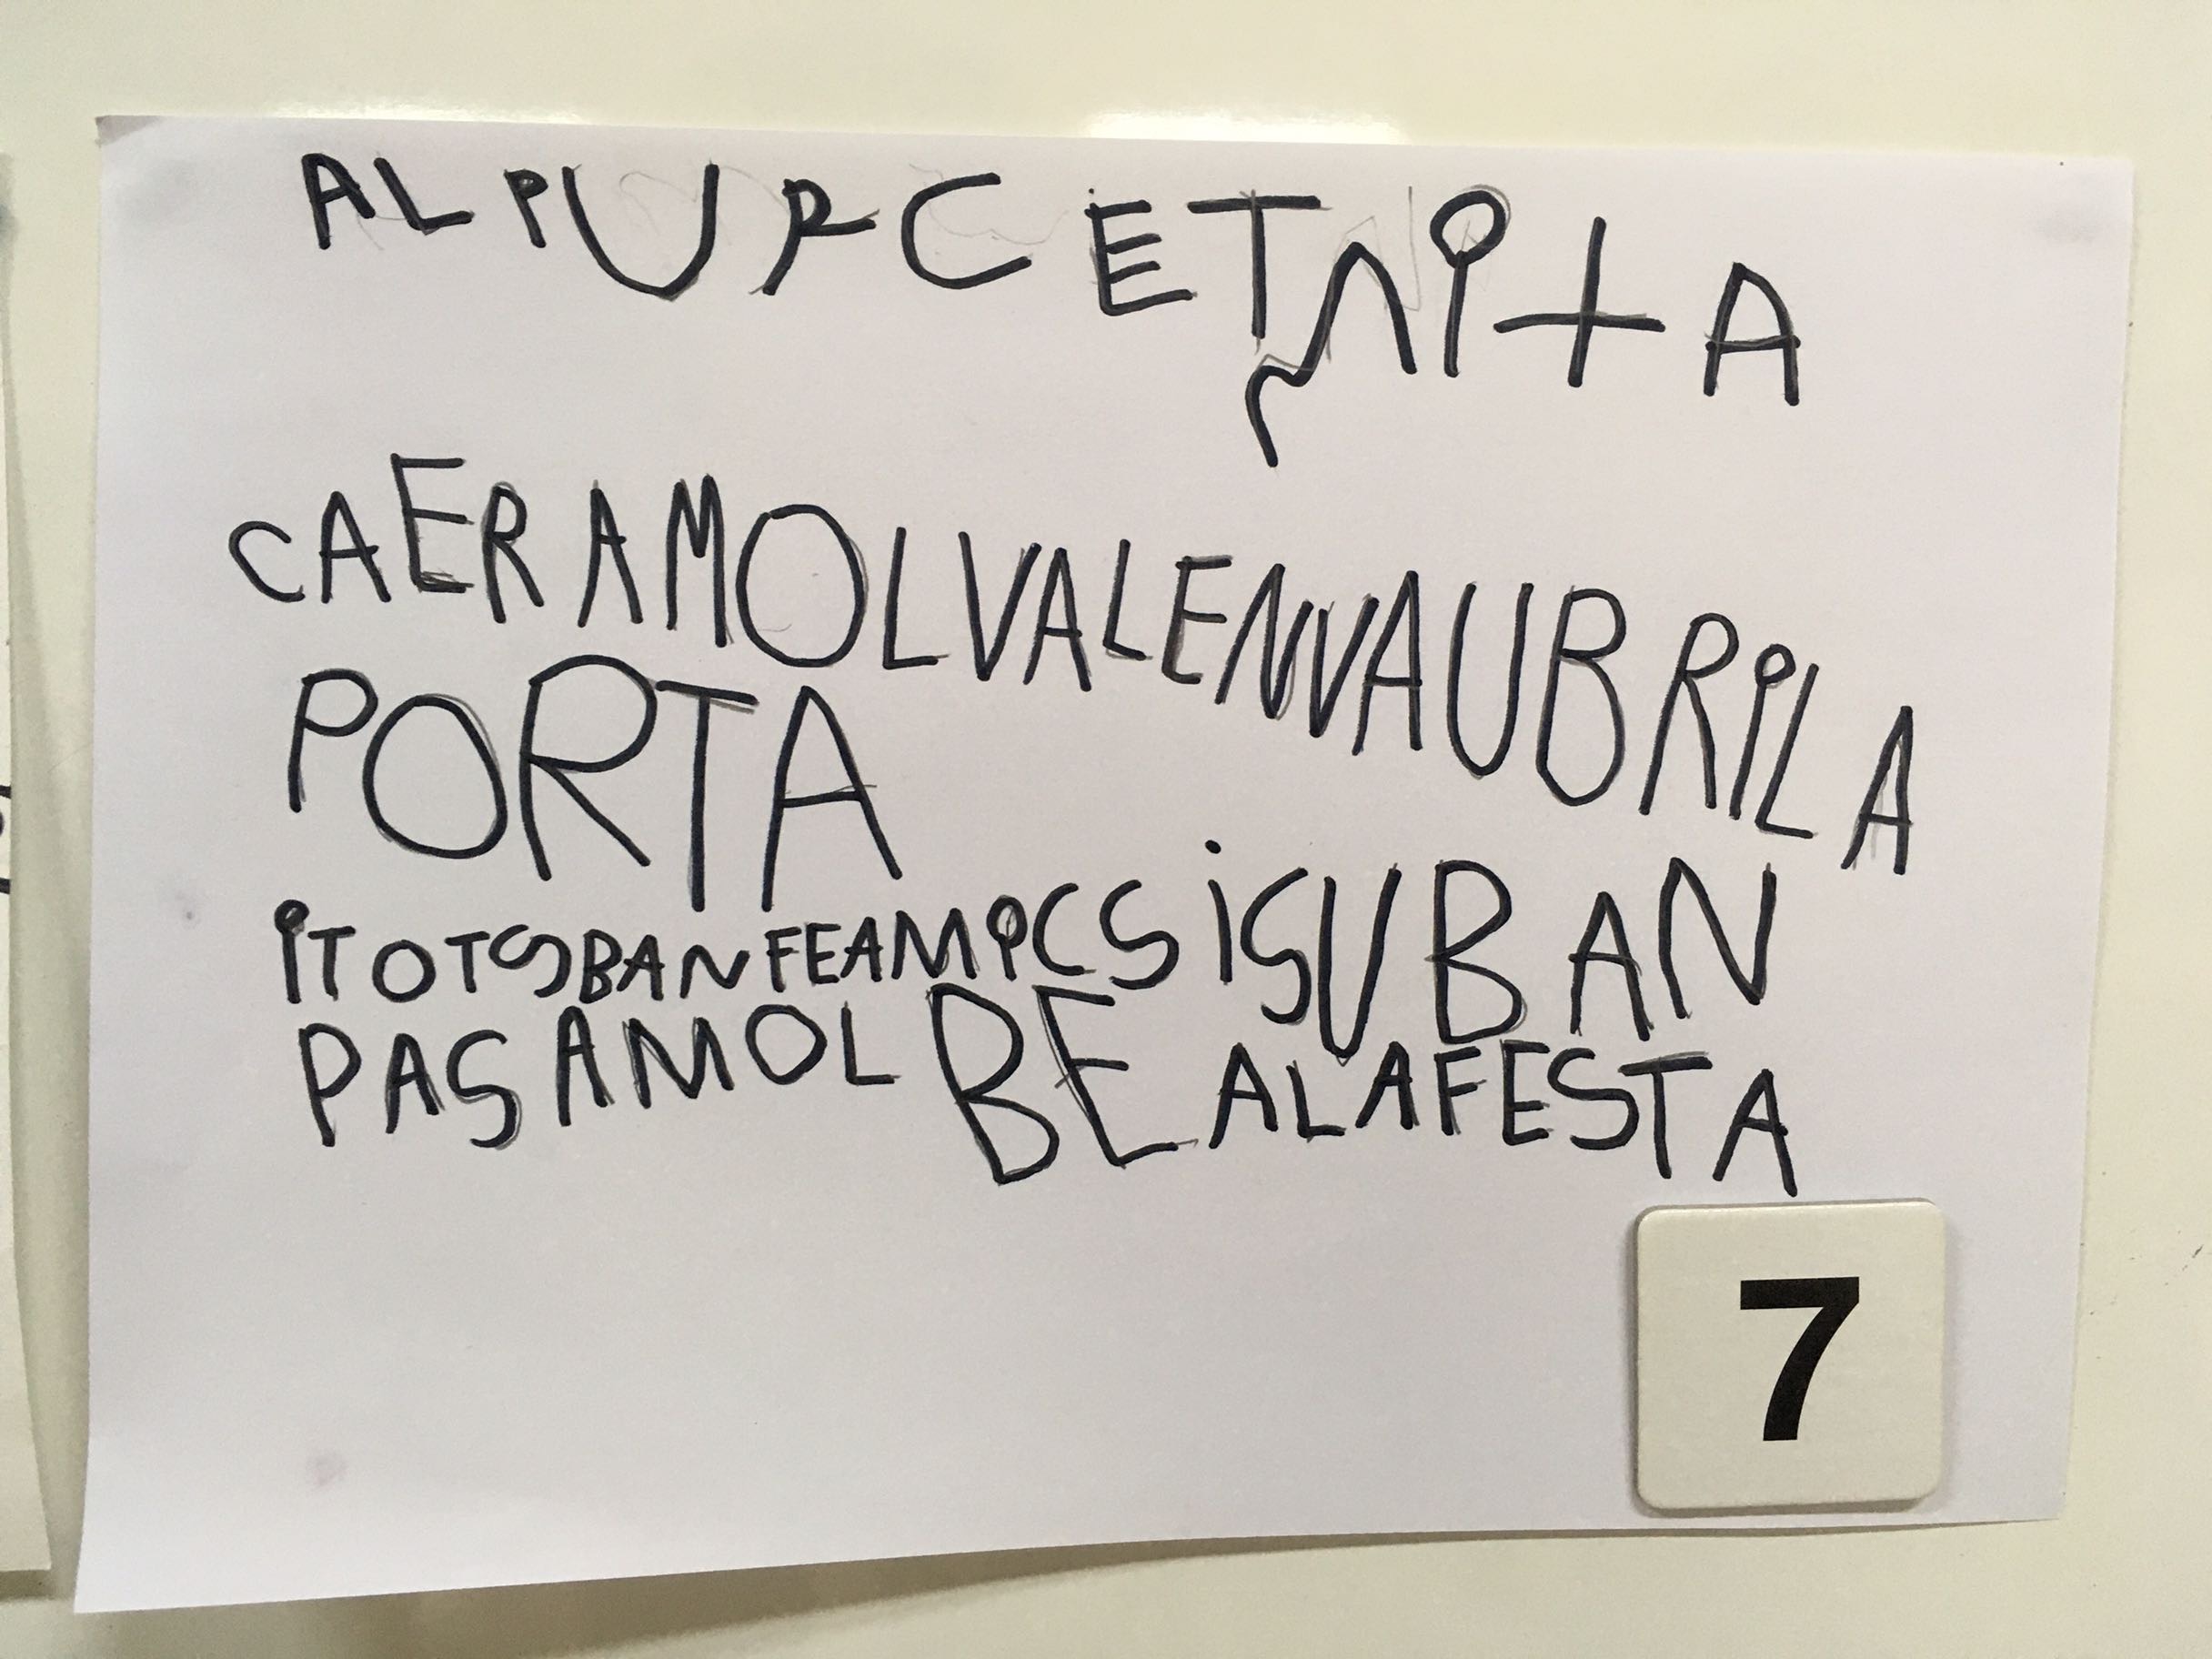 AL PURCETNITA
CAERAMOLVALENVAUBRILA
PORTA
ITOTSBANFEAMICS ISUBAN
PASAMOLBEALAFESTA
7